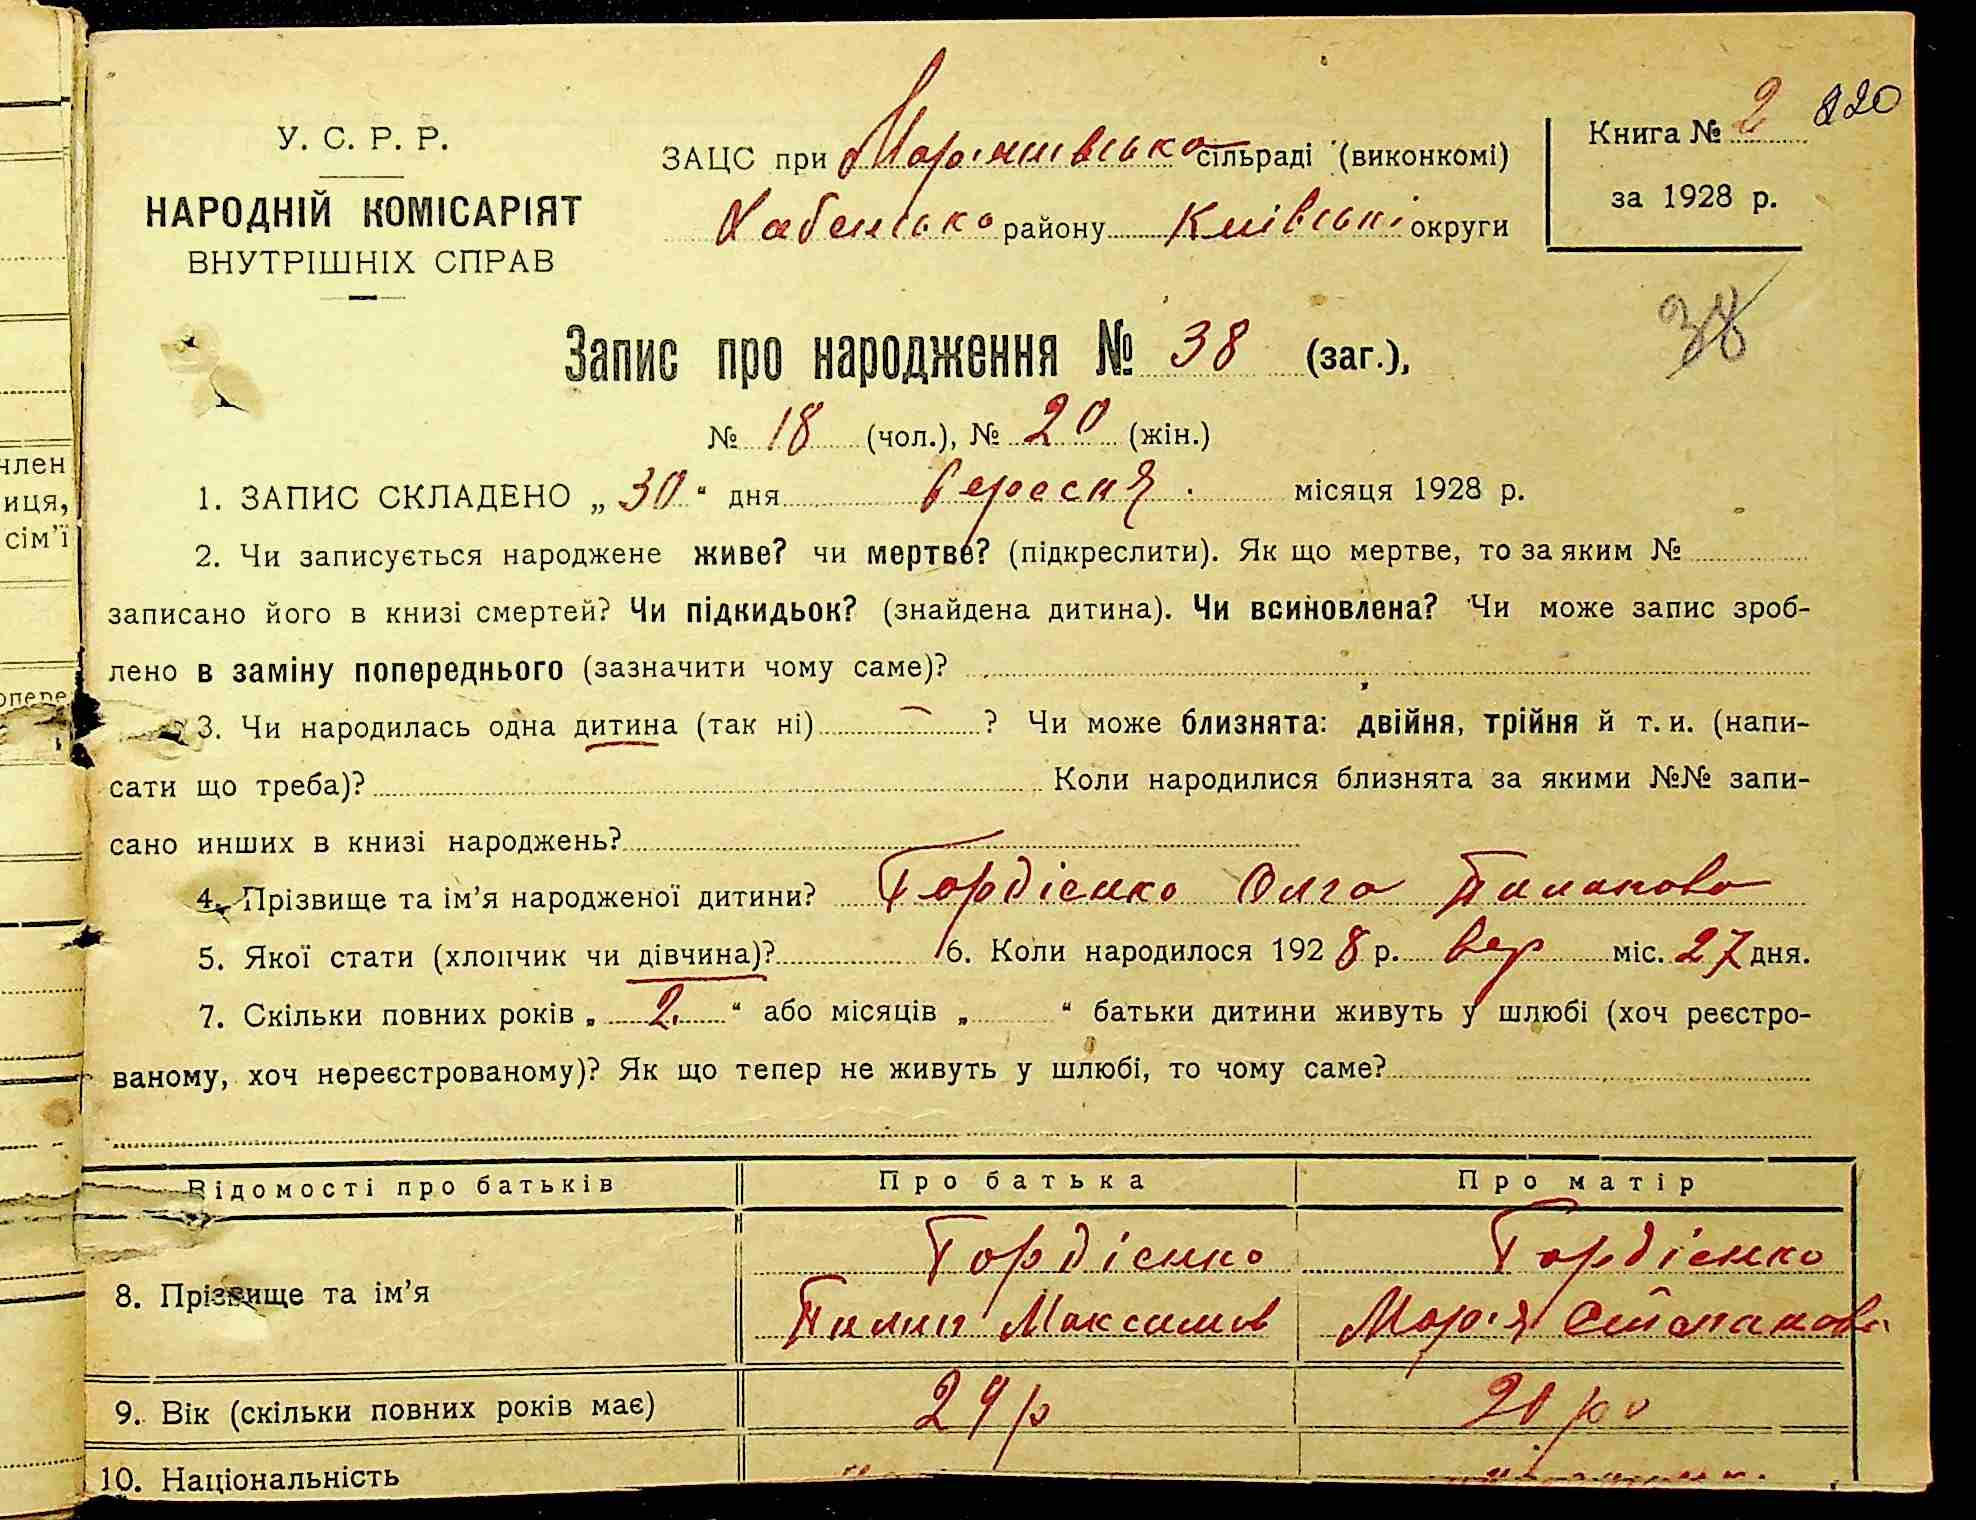 У. С. Р. Р.
НАРОДНІЙ КОМІСАРІЯТ
ВНУТРІШНІХ СПРАВ
ЗАЦС при сільраді (виконкомі)
Хабенсько району Київські округи
Книга № 2 220
за 1928 р.
38
Запис про народження № 38 (заг.),
№ 18 (чол.), № 20 (жін.)
1. ЗАПИС СКЛАДЕНО „ 30 “ дня вересня місяця 1928 р.
2. Чи записується народжене живе? чи мертве? (підкреслити). Як що мертве, то за яким №
записано його в книзі смертей? Чи підкидьок? (знайдена дитина). Чи всиновлена? Чи може запис зроб-
лено в заміну попереднього (зазначити чому саме)?
3. Чи народилась одна дитина (так ні) ? Чи може близнята: двійня, трійня й т. и. (напи-
сати що треба)? Коли народилися близнята за якими №№ запи-
сано инших в книзі народжень?
4. Прізвище та ім’я народженої дитини? Гордієнко Олга Пилипова
5. Якої стати (хлопчик чи дівчина)? 6. Коли народилося 1928 р. вер міс. 27 дня.
7. Скільки повних років „ 2. “ або місяців „ “ батьки дитини живуть у шлюбі (хоч реєстро-
ваному, хоч нереєстрованому)? Як що тепер не живуть у шлюбі, то чому саме?
Відомості про батьків Про батька Про матір
8. Прізвище та ім’я Гордієнко Гордієнко
Пилип Максимов Марія Степанова
9. Вік (скільки повних років має) 24 р 20 ро
10. Національність
член
иця,
сім’ї
опере